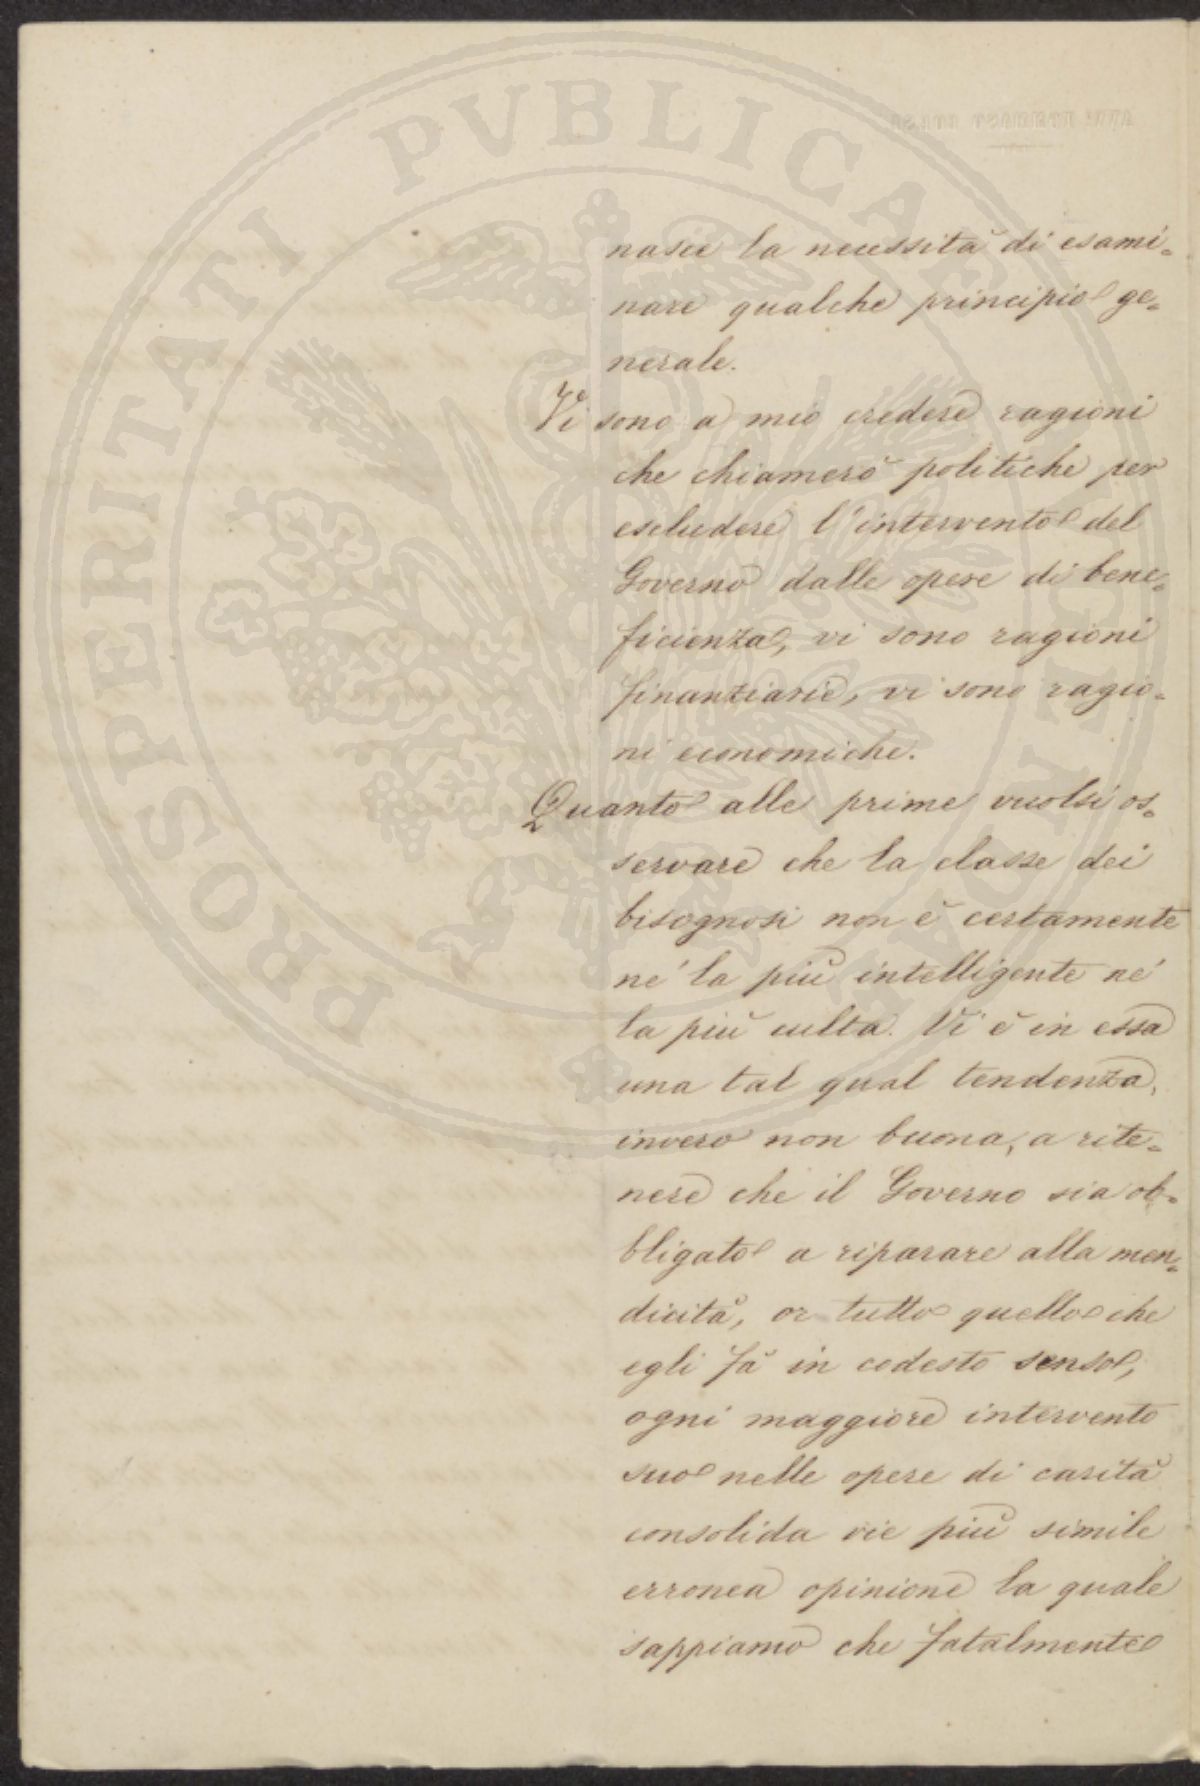 PROSPERITATI PVBLICAE AVGENDAE
nasce la necessità di esami=
nare qualche principio ge=
nerale.
Vi sono a mio credere ragioni
che chiamerò politiche per
escludere l'intervento del
Governo dalle opere di bene=
ficienza, vi sono ragioni
finanziarie, vi sono ragio=
ni economiche.
Quanto alle prime vuolsi os=
servare che la classe dei
bisognosi non è certamente
ne' la più intelligente ne'
la più culta. Vi è in essa
una tal qual tendenza,
invero non buona, a rite=
nere che il Governo sia ob=
bligato a riparare alla men=
dicità, or tutto quello che
egli fà in codesto senso,
ogni maggiore intervento
suo nelle opere di carità
consolida vie più simile
erronea opinione la quale
sappiamo che fatalmente